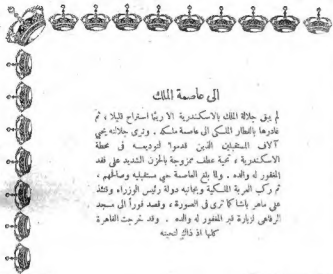 الى عاصمة الملك
لم يبق جلالة الملك بالاسكندرية الا ريثما استراح قليلا ، ثم
غادرها بالقطار الملكي الى عاصمة ملكه . وترى جلالته يحيي
آلاف المستقبلين الذين قدموا لتوديعه في محطة
الاسكندرية ، تحية عطف ممزوجة بالحزن الشديد على فقد
المغفور له والده . ولما بلغ العاصمة حيى مستقبليه وصافحهم ،
ثم ركب العربة الملكية وبجانبه دولة رئيس الوزراء وقتئذ
علي ماهر باشا كما ترى في الصورة ، وقصد فوراً الى مسجد
الرفاعي لزيارة قبر المغفور له والده . وقد خرجت القاهرة
كلها اذ ذاك لتحيته